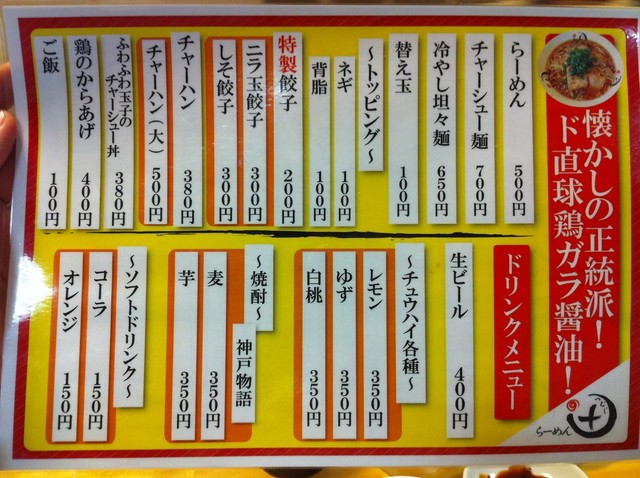 懐かしの正統派！
ド直球鶏ガラ醤油！
らーめん 500円
チャーシュー麺 700円
冷やし坦々麺 650円
替え玉 100円
～トッピング～
ネギ 100円
背脂 100円
特製餃子 200円
ニラ玉餃子 300円
しそ餃子 300円
チャーハン 380円
チャーハン(大) 500円
ふわふわ玉子の
チャーシュー丼 380円
鶏のからあげ 400円
ご飯 100円
ドリンクメニュー
生ビール 400円
～チュウハイ各種～
レモン 350円
ゆず 350円
白桃 350円
～焼酎～
神戸物語
麦 350円
芋 350円
～ソフトドリンク～
コーラ 150円
オレンジ 150円
らーめん